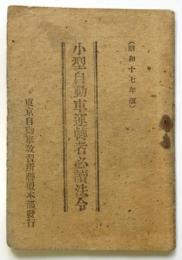 (昭和十七年版)
小型自動車運轉者必讀法令
東京自動車教習所出版部發行